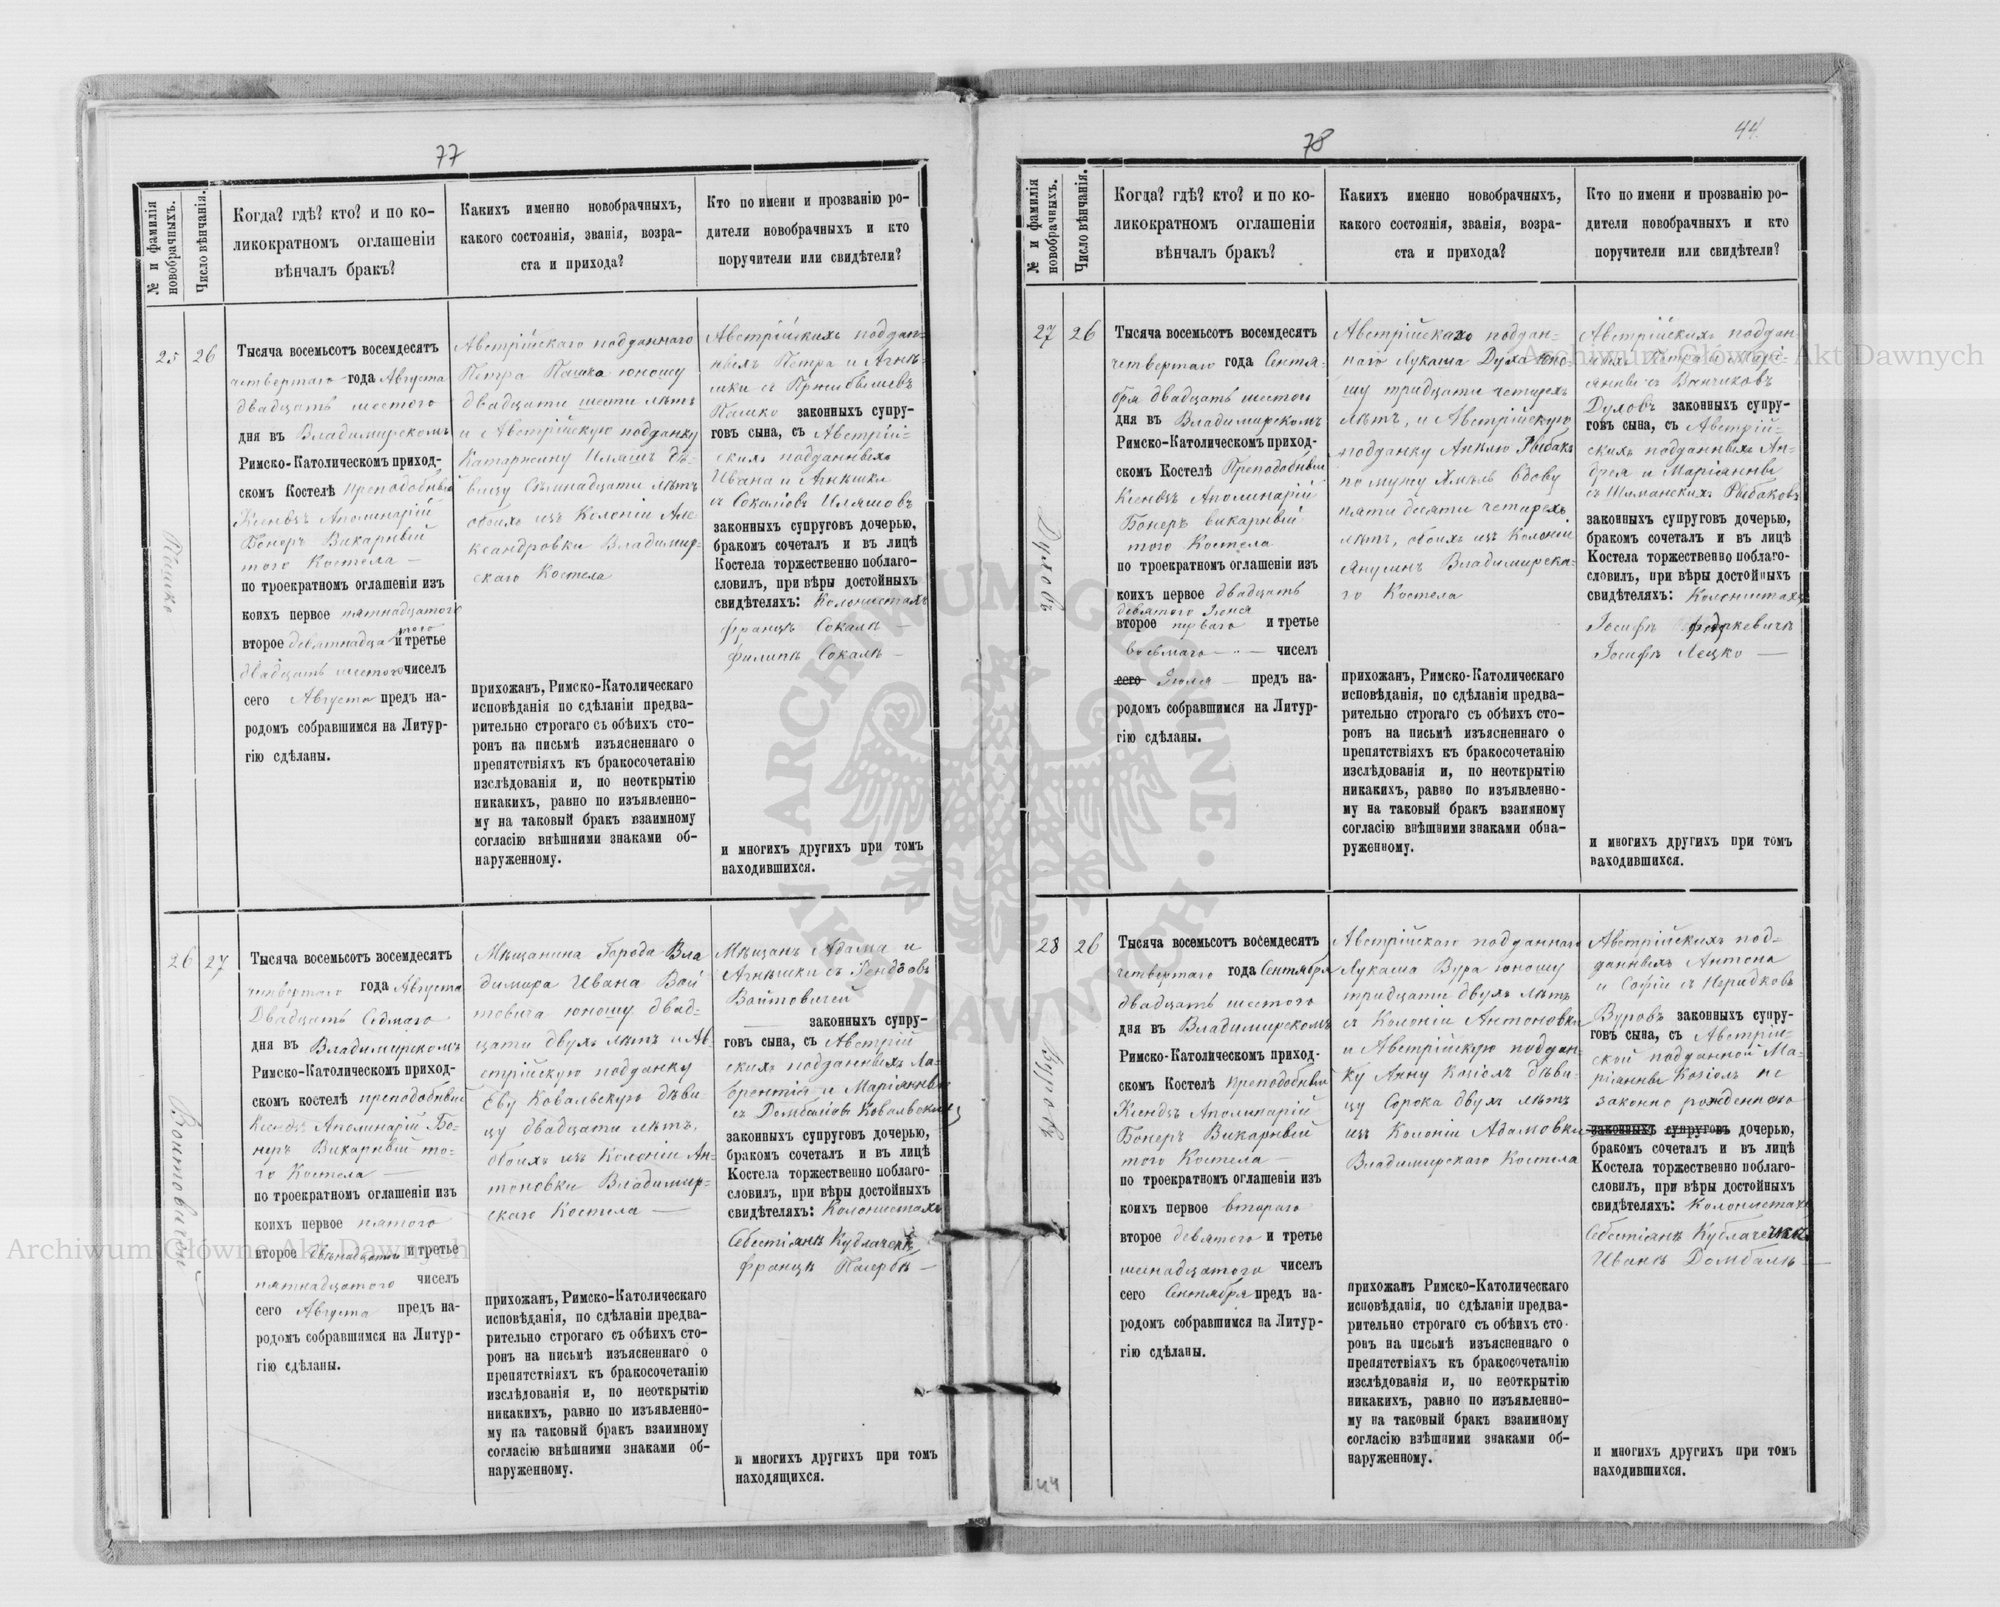 77
№ и фамилія новобрачныхъ.
Число вѣнчанія.
Когда? гдѣ? кто? и по ко-
ликократномъ оглашеніи
вѣнчалъ бракъ?
Какихъ именно новобрачныхъ,
какого состоянія, званія, возра-
ста и прихода?
Кто по имени и прозванію ро-
дители новобрачныхъ и кто
поручители или свидѣтели?
25
26
Пашко
Тысяча восемьсотъ восемдесятъ
четвертаго года Августа
двадцать шестого
дня въ Владимирскомъ
Римско-Католическомъ приход-
скомъ Костелѣ Преподобный
Ксендзъ Аполинарій
Бонеръ Викарный
того Костела —
по троекратномъ оглашеніи изъ
коихъ первое пятнадцатого
второе девятнадцатого и третье
двадцать шестого чиселъ
сего Августа предъ на-
родомъ собравшимся на Литур-
гію сдѣланы.
Австрійскаго подданного
Петра Пашка юношу
двадцати шести лѣтъ
и Австрійскую подданку
Катаржину Иляшъ дѣ-
вицу Семнадцати лѣтъ
обоихъ изъ Колоніи Але-
ксандровки Владимир-
скаго Костела
прихожанъ, Римско-Католическаго
исповѣданія, по сдѣланіи предва-
рительно строгаго съ обѣихъ сто-
ронъ на письмѣ изъясненнаго о
препятствіяхъ къ бракосочетанію
изслѣдованія и, по неоткрытію
никакихъ, равно по изъявленно-
му на таковый бракъ взаимному
согласію внѣшними знаками об-
наруженному.
Австрійскихъ поддан-
ныхъ Петра и Агнѣ-
шки съ Пржибышевъ
Пашко законныхъ супру-
говъ сына, съ Австрій-
скихъ подданныхъ
Ивана и Агнѣшки
съ Соколовъ Иляшовъ
законныхъ супруговъ дочерью,
бракомъ сочеталъ и въ лицѣ
Костела торжественно поблаго-
словилъ, при вѣры достойныхъ
свидѣтеляхъ: Колонистахъ
Францѣ Сокалѣ —
Филипѣ Сокалѣ —
и многихъ другихъ при томъ
находившихся.
26
27
Войтовичи
Тысяча восемьсотъ восемдесятъ
четвертаго года Августа
Двадцать Седмаго
дня въ Владимирскомъ
Римско-Католическомъ приход-
скомъ костелѣ преподобный
Ксендзъ Аполинарій Бо-
неръ Викарный то-
го Костела —
по троекратномъ оглашеніи изъ
коихъ первое пятого
второе и третье
пятнадцатого чиселъ
сего Августа предъ на-
родомъ собравшимся на Литур-
гію сдѣланы.
Мѣщанина Города Вла
димира Ивана Вой
товича юношу двад-
цати двухъ лѣтъ и Ав-
стрійскую подданку
Еву Ковальскую дѣви-
цу двадцати лѣтъ,
обоихъ изъ Колоніи Ан-
тоновки Владимир-
скаго Костела —
прихожанъ, Римско-Католическаго
исповѣданія, по сдѣланіи предва-
рительно строгаго съ обѣихъ сто-
ронъ на письмѣ изъясненнаго о
препятствіяхъ къ бракосочетанію
изслѣдованія и, по неоткрытію
никакихъ, равно по изъявленно-
му на таковый бракъ взаимному
согласію внѣшними знаками об-
наруженному.
Мѣщанъ Адама и
Агнѣшки съ
Войтовичей
законныхъ супру-
говъ сына, съ Австрій
скихъ подданныхъ Ла-
врентія и Маріянны
съ Домбаловъ Ковальскихъ
законныхъ супруговъ дочерью,
бракомъ сочеталъ и въ лицѣ
Костела торжественно поблаго-
словилъ, при вѣры достойныхъ
свидѣтеляхъ: Колонистахъ
Себестіянѣ
Францѣ —
и многихъ другихъ при томъ
находящихся.
78
44
№ и фамилія новобрачныхъ.
Число вѣнчанія.
Когда? гдѣ? кто? и по ко-
ликократномъ оглашеніи
вѣнчалъ бракъ?
Какихъ именно новобрачныхъ,
какого состоянія, званія, возра-
ста и прихода?
Кто по имени и прозванію ро-
дители новобрачныхъ и кто
поручители или свидѣтели?
27
26
Духовъ
Тысяча восемьсотъ восемдесятъ
четвертаго года Сентя-
бря двадцать шестого
дня въ Владимирскомъ
Римско-Католическомъ приход-
скомъ Костелѣ Преподобный
Ксендзъ Аполинарій
Бонеръ викарный
того Костела
по троекратномъ оглашеніи изъ
коихъ первое двадцать
девятого Іюня
второе перваго и третье
восьмаго — чиселъ
сего Іюля — предъ на-
родомъ собравшимся на Литур-
гію сдѣланы.
Австрійскаго поддан-
наго Лукаша Духа юно-
шу тридцати четырехъ
лѣтъ, и Австрійскую
подданку Анелю Рыбакъ
по мужу Хмѣль вдову
пятидесяти четырехъ
лѣтъ, обоихъ изъ Колоніи
Янулинъ Владимирска-
го Костела
прихожанъ, Римско-Католическаго
исповѣданія, по сдѣланіи предва-
рительно строгаго съ обѣихъ сто-
ронъ на письмѣ изъясненнаго о
препятствіяхъ къ бракосочетанію
изслѣдованія и, по неоткрытію
никакихъ, равно по изъявленно-
му на таковый бракъ взаимному
согласію внѣшними знаками обна-
руженному.
Австрійскихъ поддан
ныхъ Петра и Марі-
янны съ Ванчиковъ
Духовъ законныхъ супру-
говъ сына, съ Австрій-
скихъ подданныхъ Ан-
дрея и Маріянны
съ Шиманскихъ Рыбаковъ
законныхъ супруговъ дочерью,
бракомъ сочеталъ и въ лицѣ
Костела торжественно поблаго-
словилъ, при вѣры достойныхъ
свидѣтеляхъ: Колонистахъ
Іосифѣ
Іосифѣ Лецко —
и многихъ другихъ при томъ
находившихся.
28
26
Вуровъ
Тысяча восемьсотъ восемдесятъ
четвертаго года Сентября
двадцать шестого
дня въ Владимирскомъ
Римско-Католическомъ приход-
скомъ Костелѣ Преподобный
Ксендзъ Аполинарій
Бонеръ Викарный
того Костела —
по троекратномъ оглашеніи изъ
коихъ первое второго
второе девятого и третье
чиселъ
сего Сентября предъ на-
родомъ собравшимся на Литур-
гію сдѣланы.
Австрійскаго подданного
Лукаша Вура юношу
тридцати двухъ лѣтъ
съ Колоніи Антоновки
и Австрійскую поддан-
ку Анну Козіолъ дѣви-
цу Сорока двухъ лѣтъ
изъ Колоніи Адамовки
Владимирскаго Костела
прихожанъ Римско-Католическаго
исповѣданія, по сдѣланіи предва-
рительно строгаго съ обѣихъ сто-
ронъ на письмѣ изъясненнаго о
препятствіяхъ къ бракосочетанію
изслѣдованія и, по неоткрытію
никакихъ, равно по изъявленно-
му на таковый бракъ взаимному
согласію внѣшними знаками об-
наруженному.
Австрійскихъ под-
данныхъ Антона
и Софіи съ
Вуровъ законныхъ супру-
говъ сына, съ Австрій-
ской подданной Ма-
ріянны Козіолъ не
законно рожденною
законныхъ супруговъ дочерью,
бракомъ сочеталъ и въ лицѣ
Костела торжественно поблаго-
словилъ, при вѣры достойныхъ
свидѣтеляхъ: Колонистахъ
Себестіянѣ
Иванѣ Домбалѣ —
и многихъ другихъ при томъ
находившихся.
44
Archiwum Główne Akt Dawnych
Archiwum Główne Akt Dawnych
ARCHIWUM GŁÓWNE AKT DAWNYCH